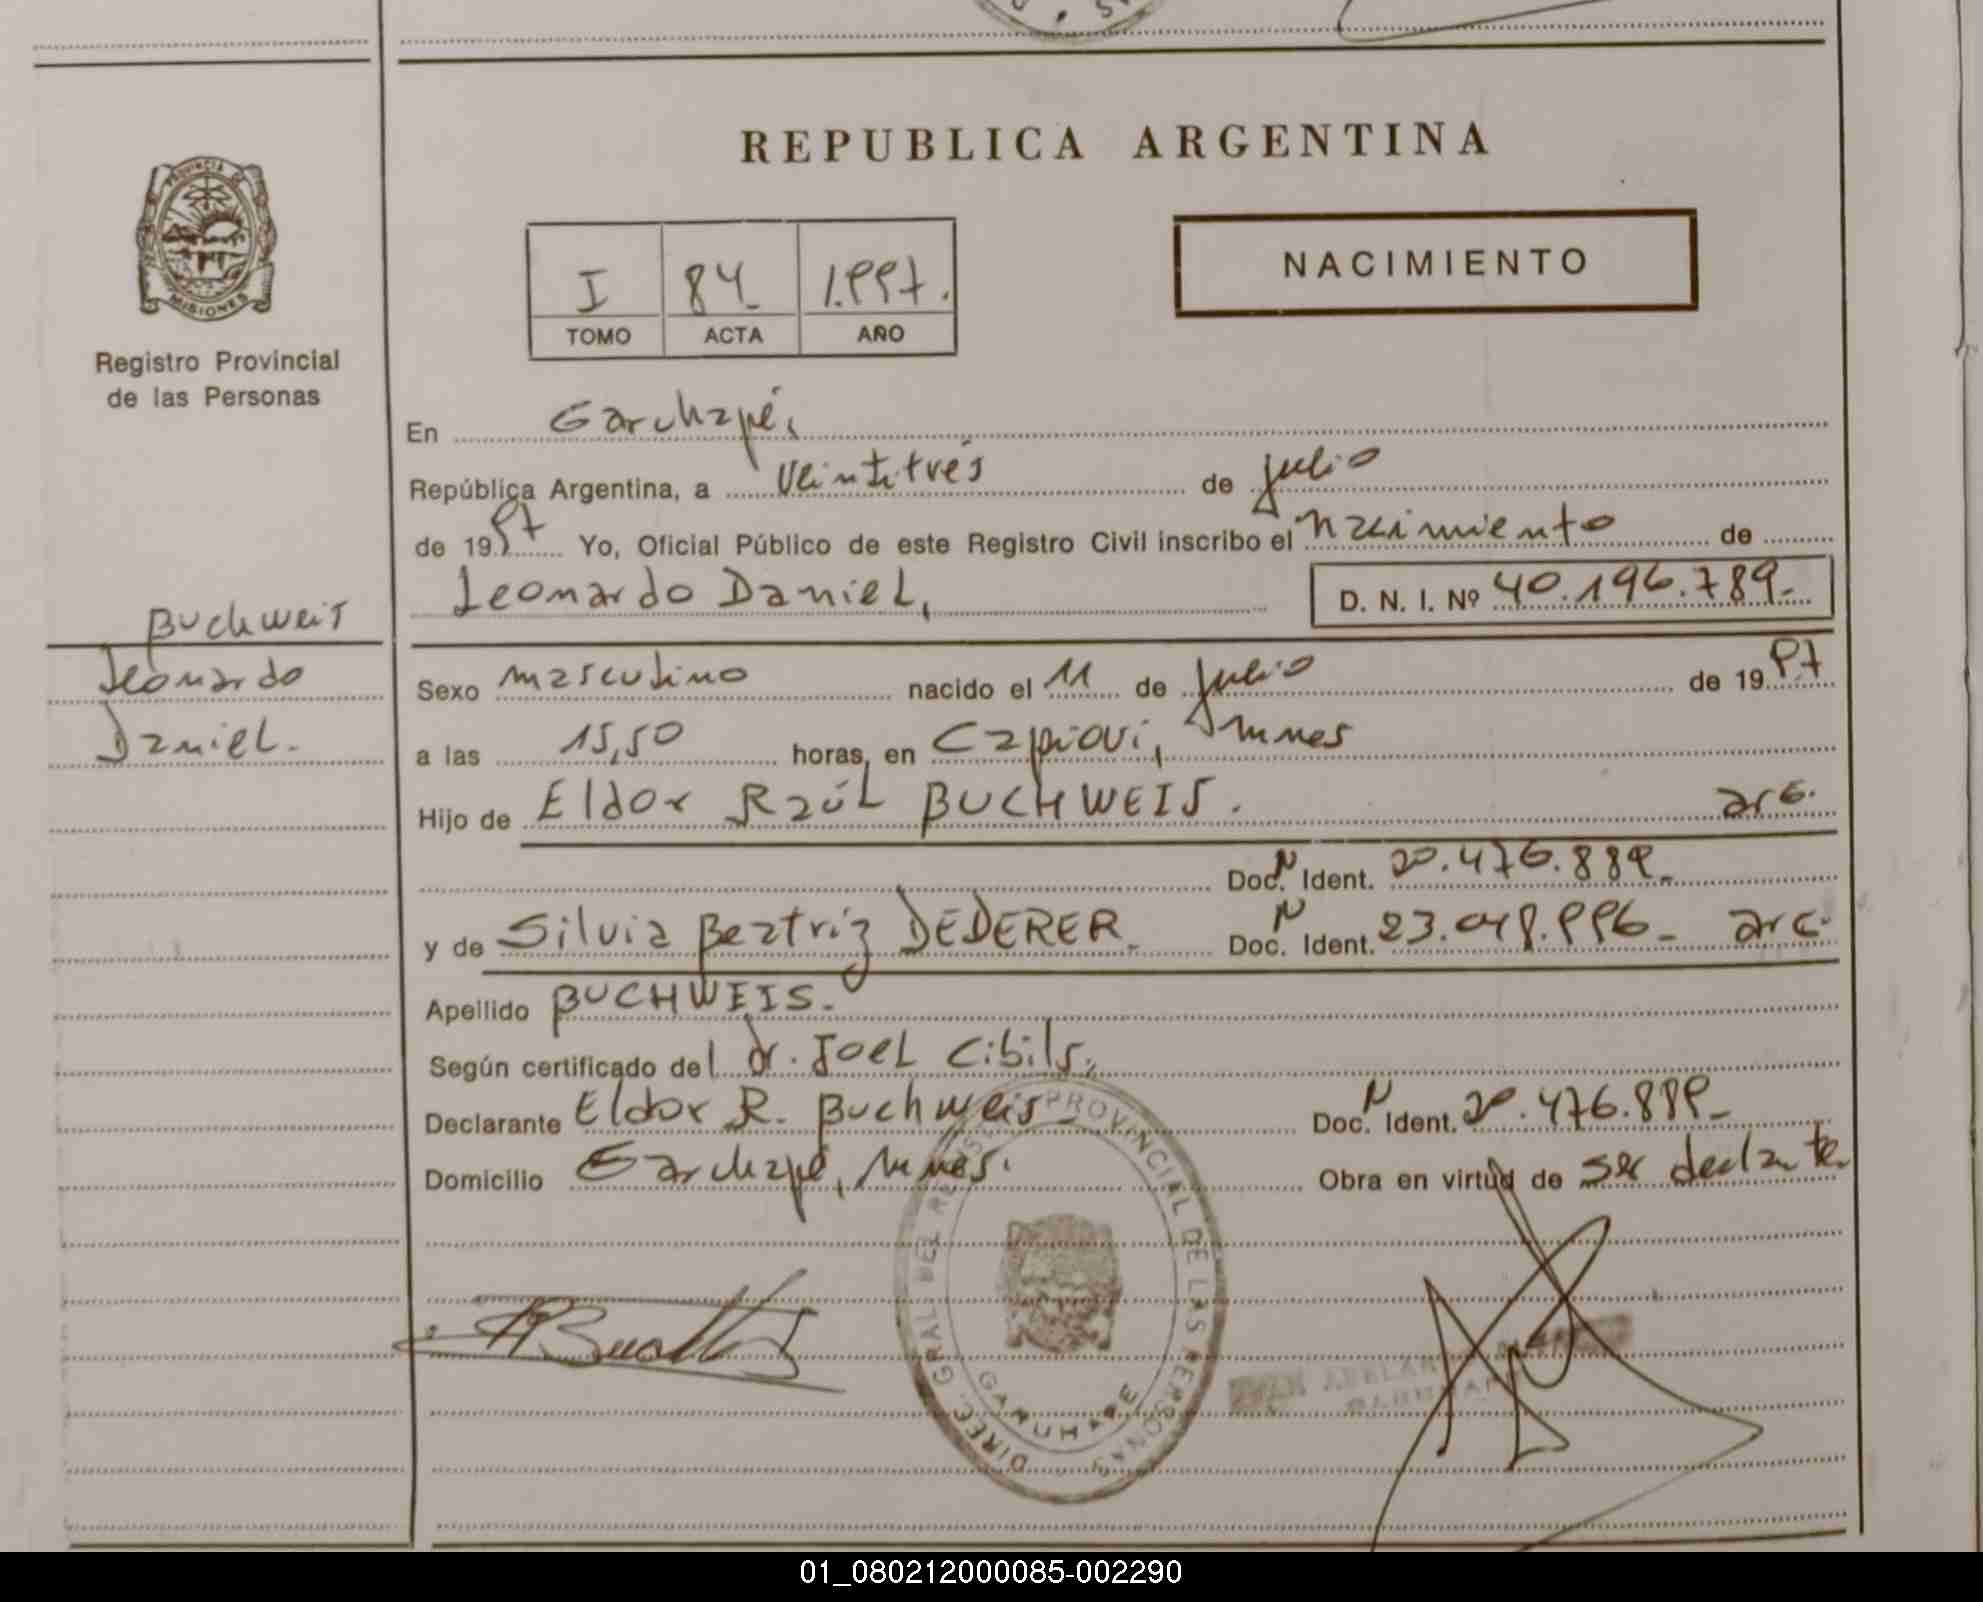 REPUBLICA ARGENTINA
PROVINCIA DE
MISIONES
Registro Provincial
de las Personas
I 84 1.997.
TOMO ACTA AÑO
NACIMIENTO
En Garuhapé,
República Argentina, a veintitrés de julio
de 1997 Yo, Oficial Público de este Registro Civil inscribo el nacimiento de
Leonardo Daniel, D. N. I. Nº 40.196.789-
Buchweis
Leonardo
Daniel.
Sexo masculino nacido el 11 de julio de 1997
a las 15,50 horas, en Capiovi, Mnes
Hijo de Eldor Raúl BUCHWEIS. arg.
Doc. N Ident. 20.476.889-
y de Silvia Beatriz DEDERER- Doc. N Ident. 23.048.996- arg.
Apellido BUCHWEIS.
Según certificado del dr. Joel Cibils,
Declarante Eldor R. Buchweis Doc. N Ident. 20.476.889-
Domicilio Garuhapé, Mnes. Obra en virtud de ser declante
DIREC. GRAL. DEL REG. PROVINCIAL DE LAS PERSONAS
GARUHAPE
01_080212000085-002290